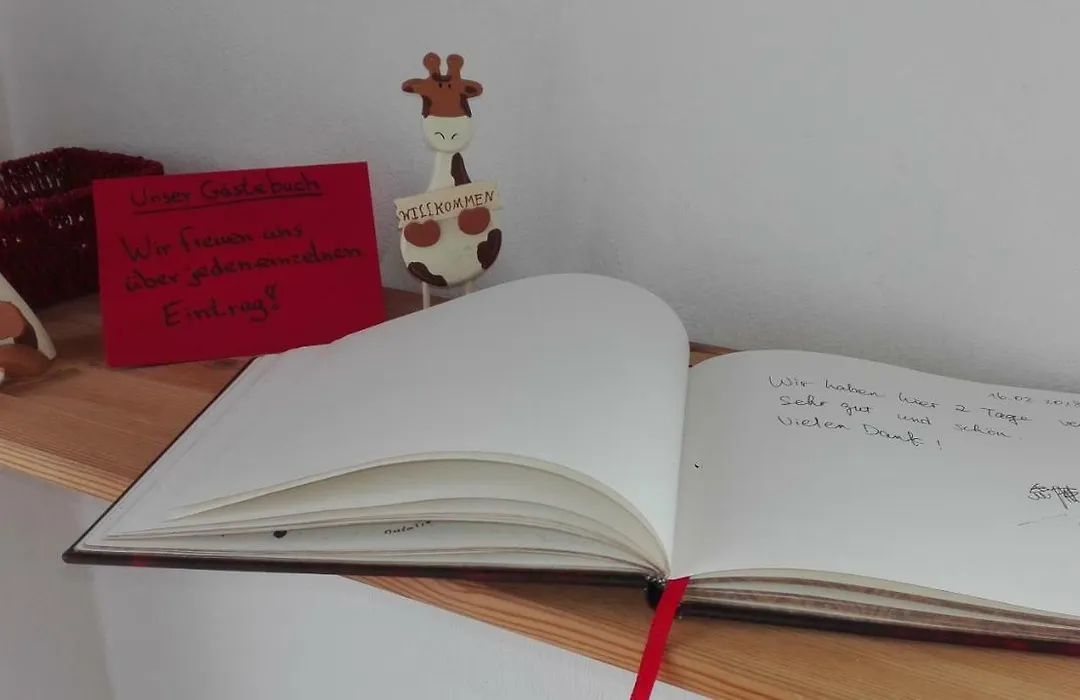 Unser Gästebuch
Wir freuen uns
über jeden einzelnen
Eintrag!
WILLKOMMEN
16.02.2018
Wir haben hier 2 Tage
Sehr gut und schön.
Vielen Dank!
natalie